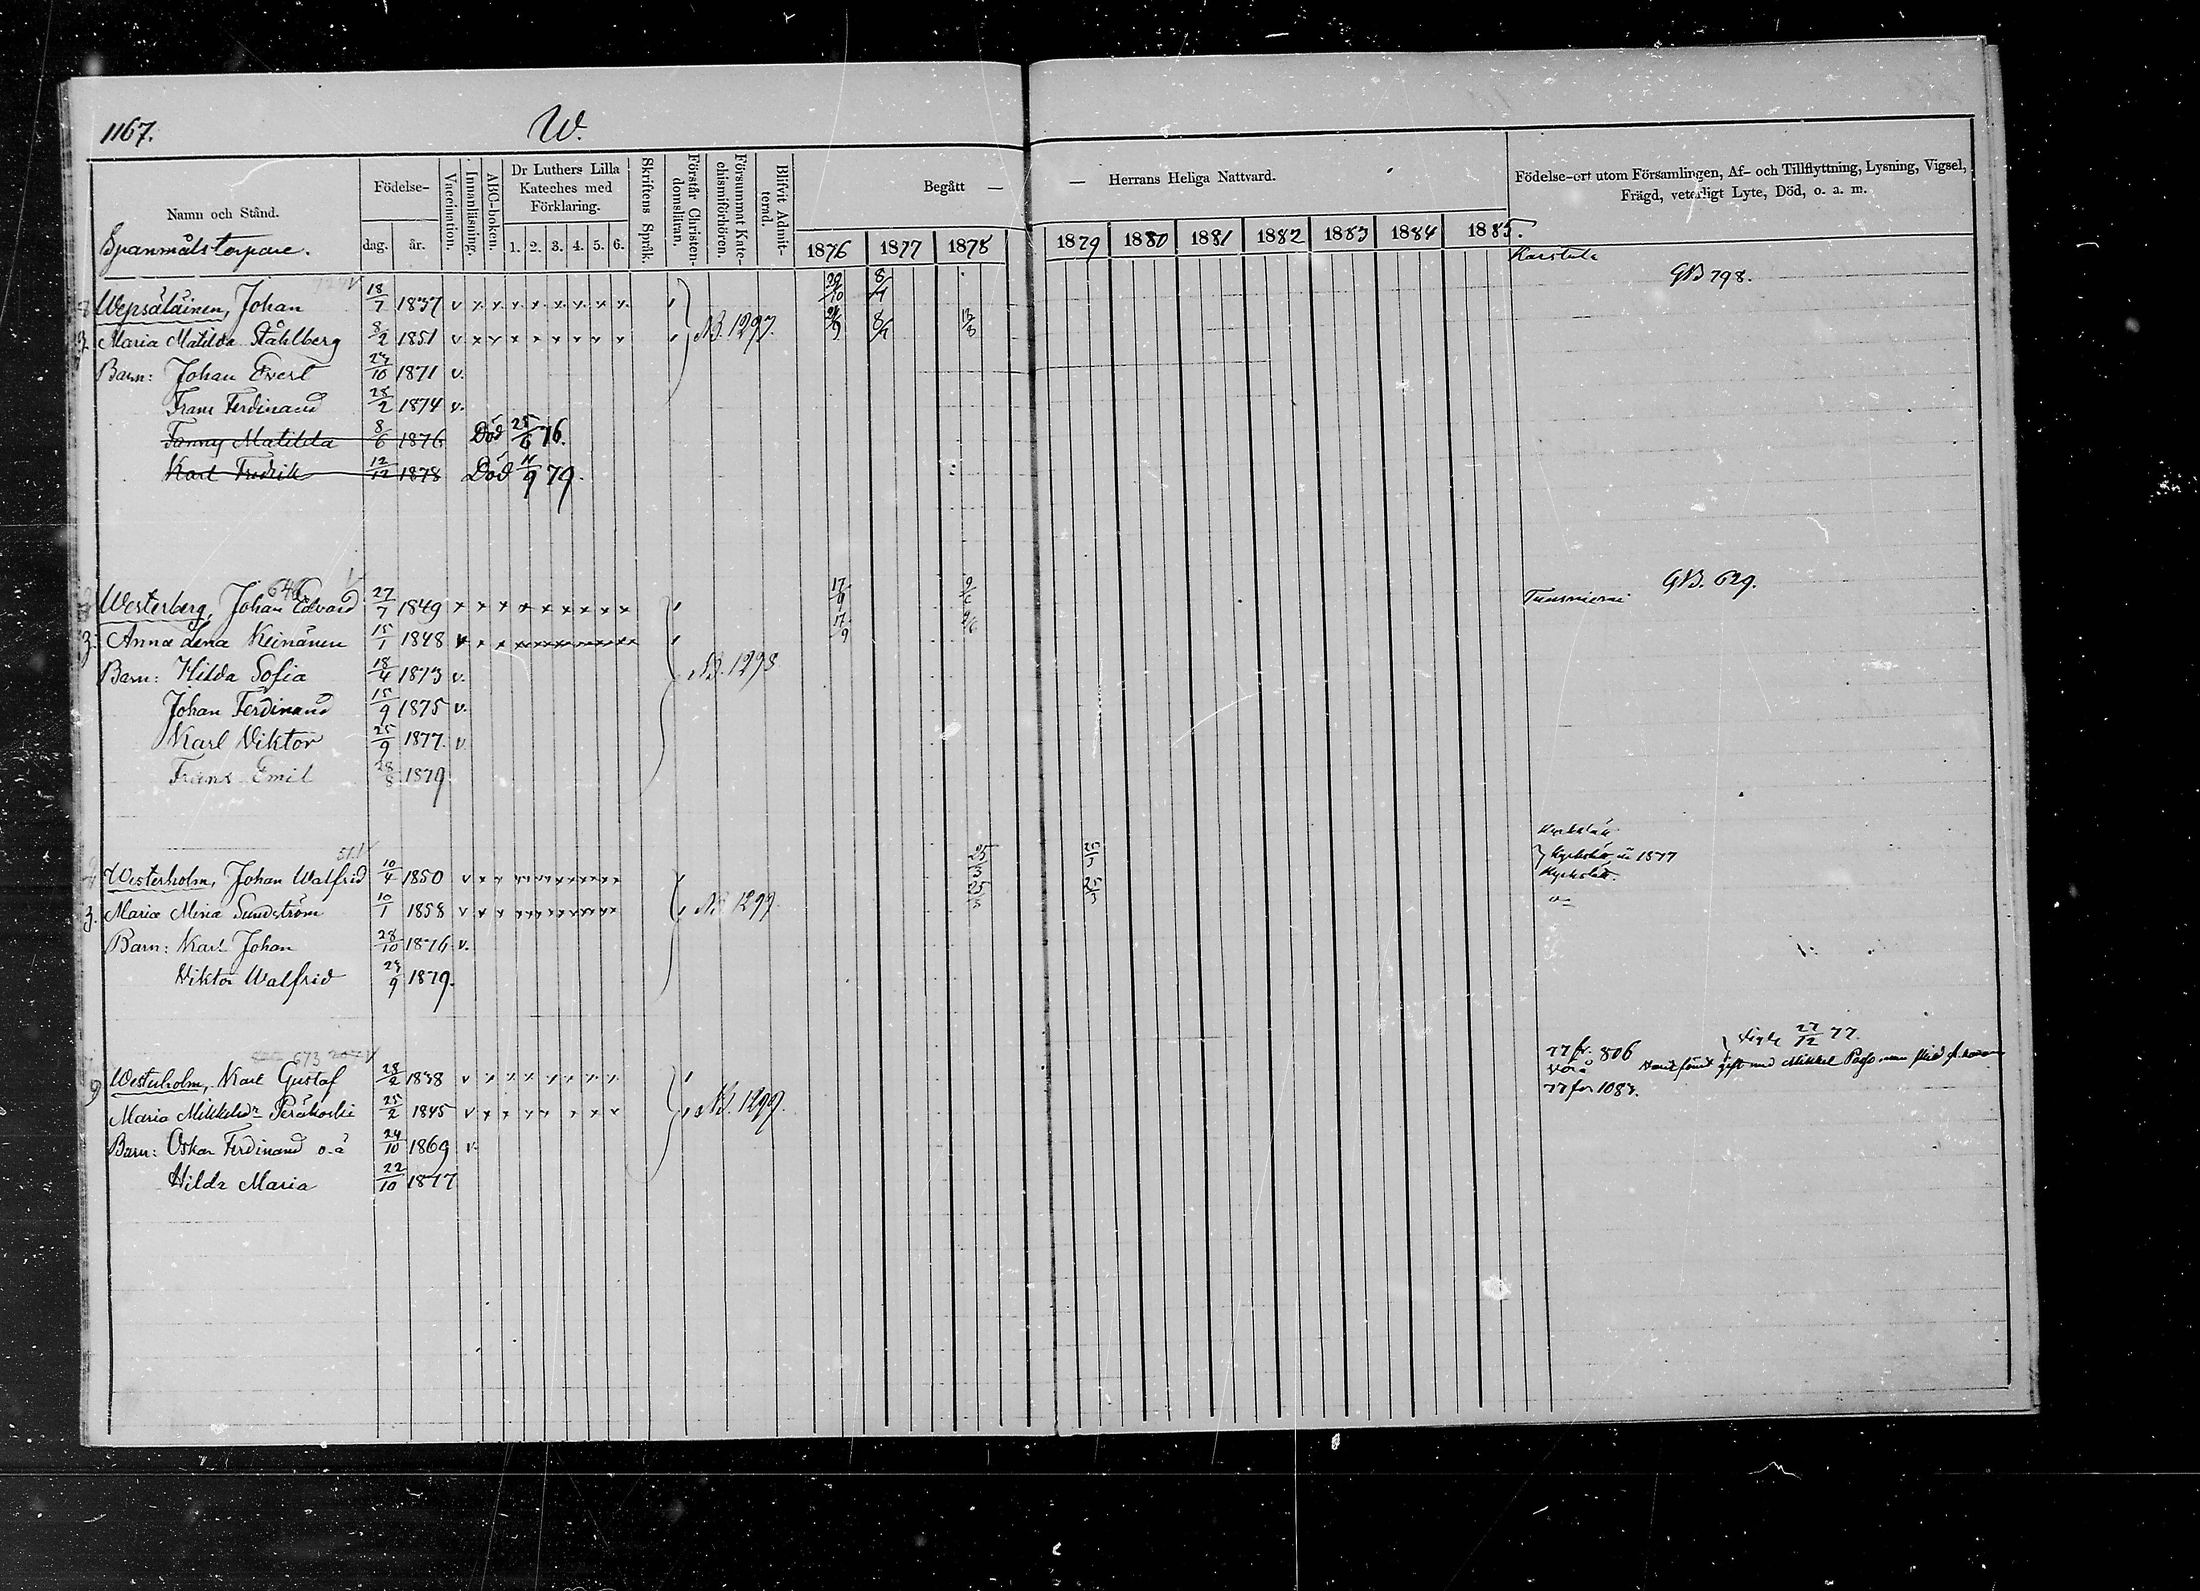 1167.
W.
Namn och Stånd.
Födelse-
dag.
år.
Vaccination.
Innanläsning.
ABC-boken.
Dr Luthers Lilla
Kateches med
Förklaring.
1. 2. 3. 4. 5. 6.
Skriftens Språk.
Förstår Christen-
domsläran.
Försummat Kate-
chismiförhören.
Blifvit Admit-
terad.
Begått —
— Herrans Heliga Nattvard.
1876 1877 1878
1879 1880 1881 1882 1883 1884 1885.
Födelse-ort utom Församlingen, Af- och Tillflyttning, Lysning, Vigsel,
Frägd, veterligt Lyte, Död, o. a. m.
Spanmålstorpare.
Karstula
GB 798.
Wepsäläinen, Johan 18/7 1837 v x x x x x x x x 29/10 8/7
3. Maria Matilda Ståhlberg 8/2 1851 v x x x x x x x x NB. 1297. 8/7 13/8
Barn: Johan Evert 1871 v.
Frans Ferdinand 28/2 1874 v.
Fanny Matilda 8/6 1876 Död 25/6 76.
Karl Fredrik 12/12 1878 Död 11/9 79.
GB. 629.
646
Westerberg, Johan Edvard 27/7 1849 x x x x x x x x x 17/9
3. Anna Lena Keinänen 15/1 1848 17/9
Barn: Hilda Sofia 18/4 1873 v. NB. 1298
Johan Ferdinand 15/9 1875 v.
Karl Viktor 25/9 1877. v
Frans Emil 28/8 1879
Westerholm, Johan Walfrid 10/4 1850 25/5 25/5 1877
3. Maria Mina Sundström 10/1 1858 NB 1299. 25/5 25/5
Barn: Karl Johan 28/10 1876 v.
Viktor Walfrid 1879.
673
77 fr. 806
Vigde 27/12 77.
9 Westerholm, Karl Gustaf 28/2 1838 v x x x x x x x
77 for 1083.
Maria Mikkelsdr Peräkoski 25/2 1845 NB. 1299.
Barn: Oskar Ferdinand o.ä 24/10 1869 v.
Hilda Maria 22/10 1877